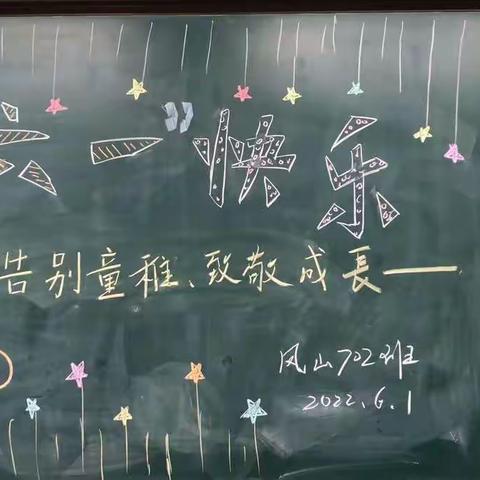 六一”快乐
告别童稚、致敬成長——
凤山702班
2022.6.1